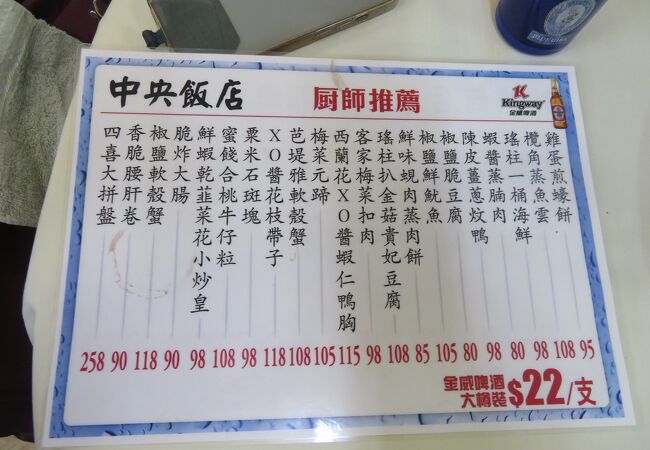 中央飯店
厨師推薦
Kingway
金威啤酒
雞蛋煎蠔餅
欖角蒸魚雲
瑤柱一桶海鮮
蝦醬蒸腩肉
陳皮薑蔥炆鴨
椒鹽脆豆腐
椒鹽鮮魷魚
鮮味蜆肉蒸肉餅
瑤柱扒金菇貴妃豆腐
客家梅菜扣肉
西蘭花XO醬蝦仁鴨胸
梅菜元蹄
芭堤雅軟殼蟹
XO醬花枝帶子
粟米石斑塊
蜜餞合桃牛仔粒
鮮蝦乾韮菜花小炒皇
脆炸大腸
椒鹽軟殼蟹
香脆腰肝卷
四喜大拼盤
258 90 118 90 98 108 98 118 108 105 115 98 108 85 105 80 98 80 98 108 95
金威啤酒
大樽裝 $22/支